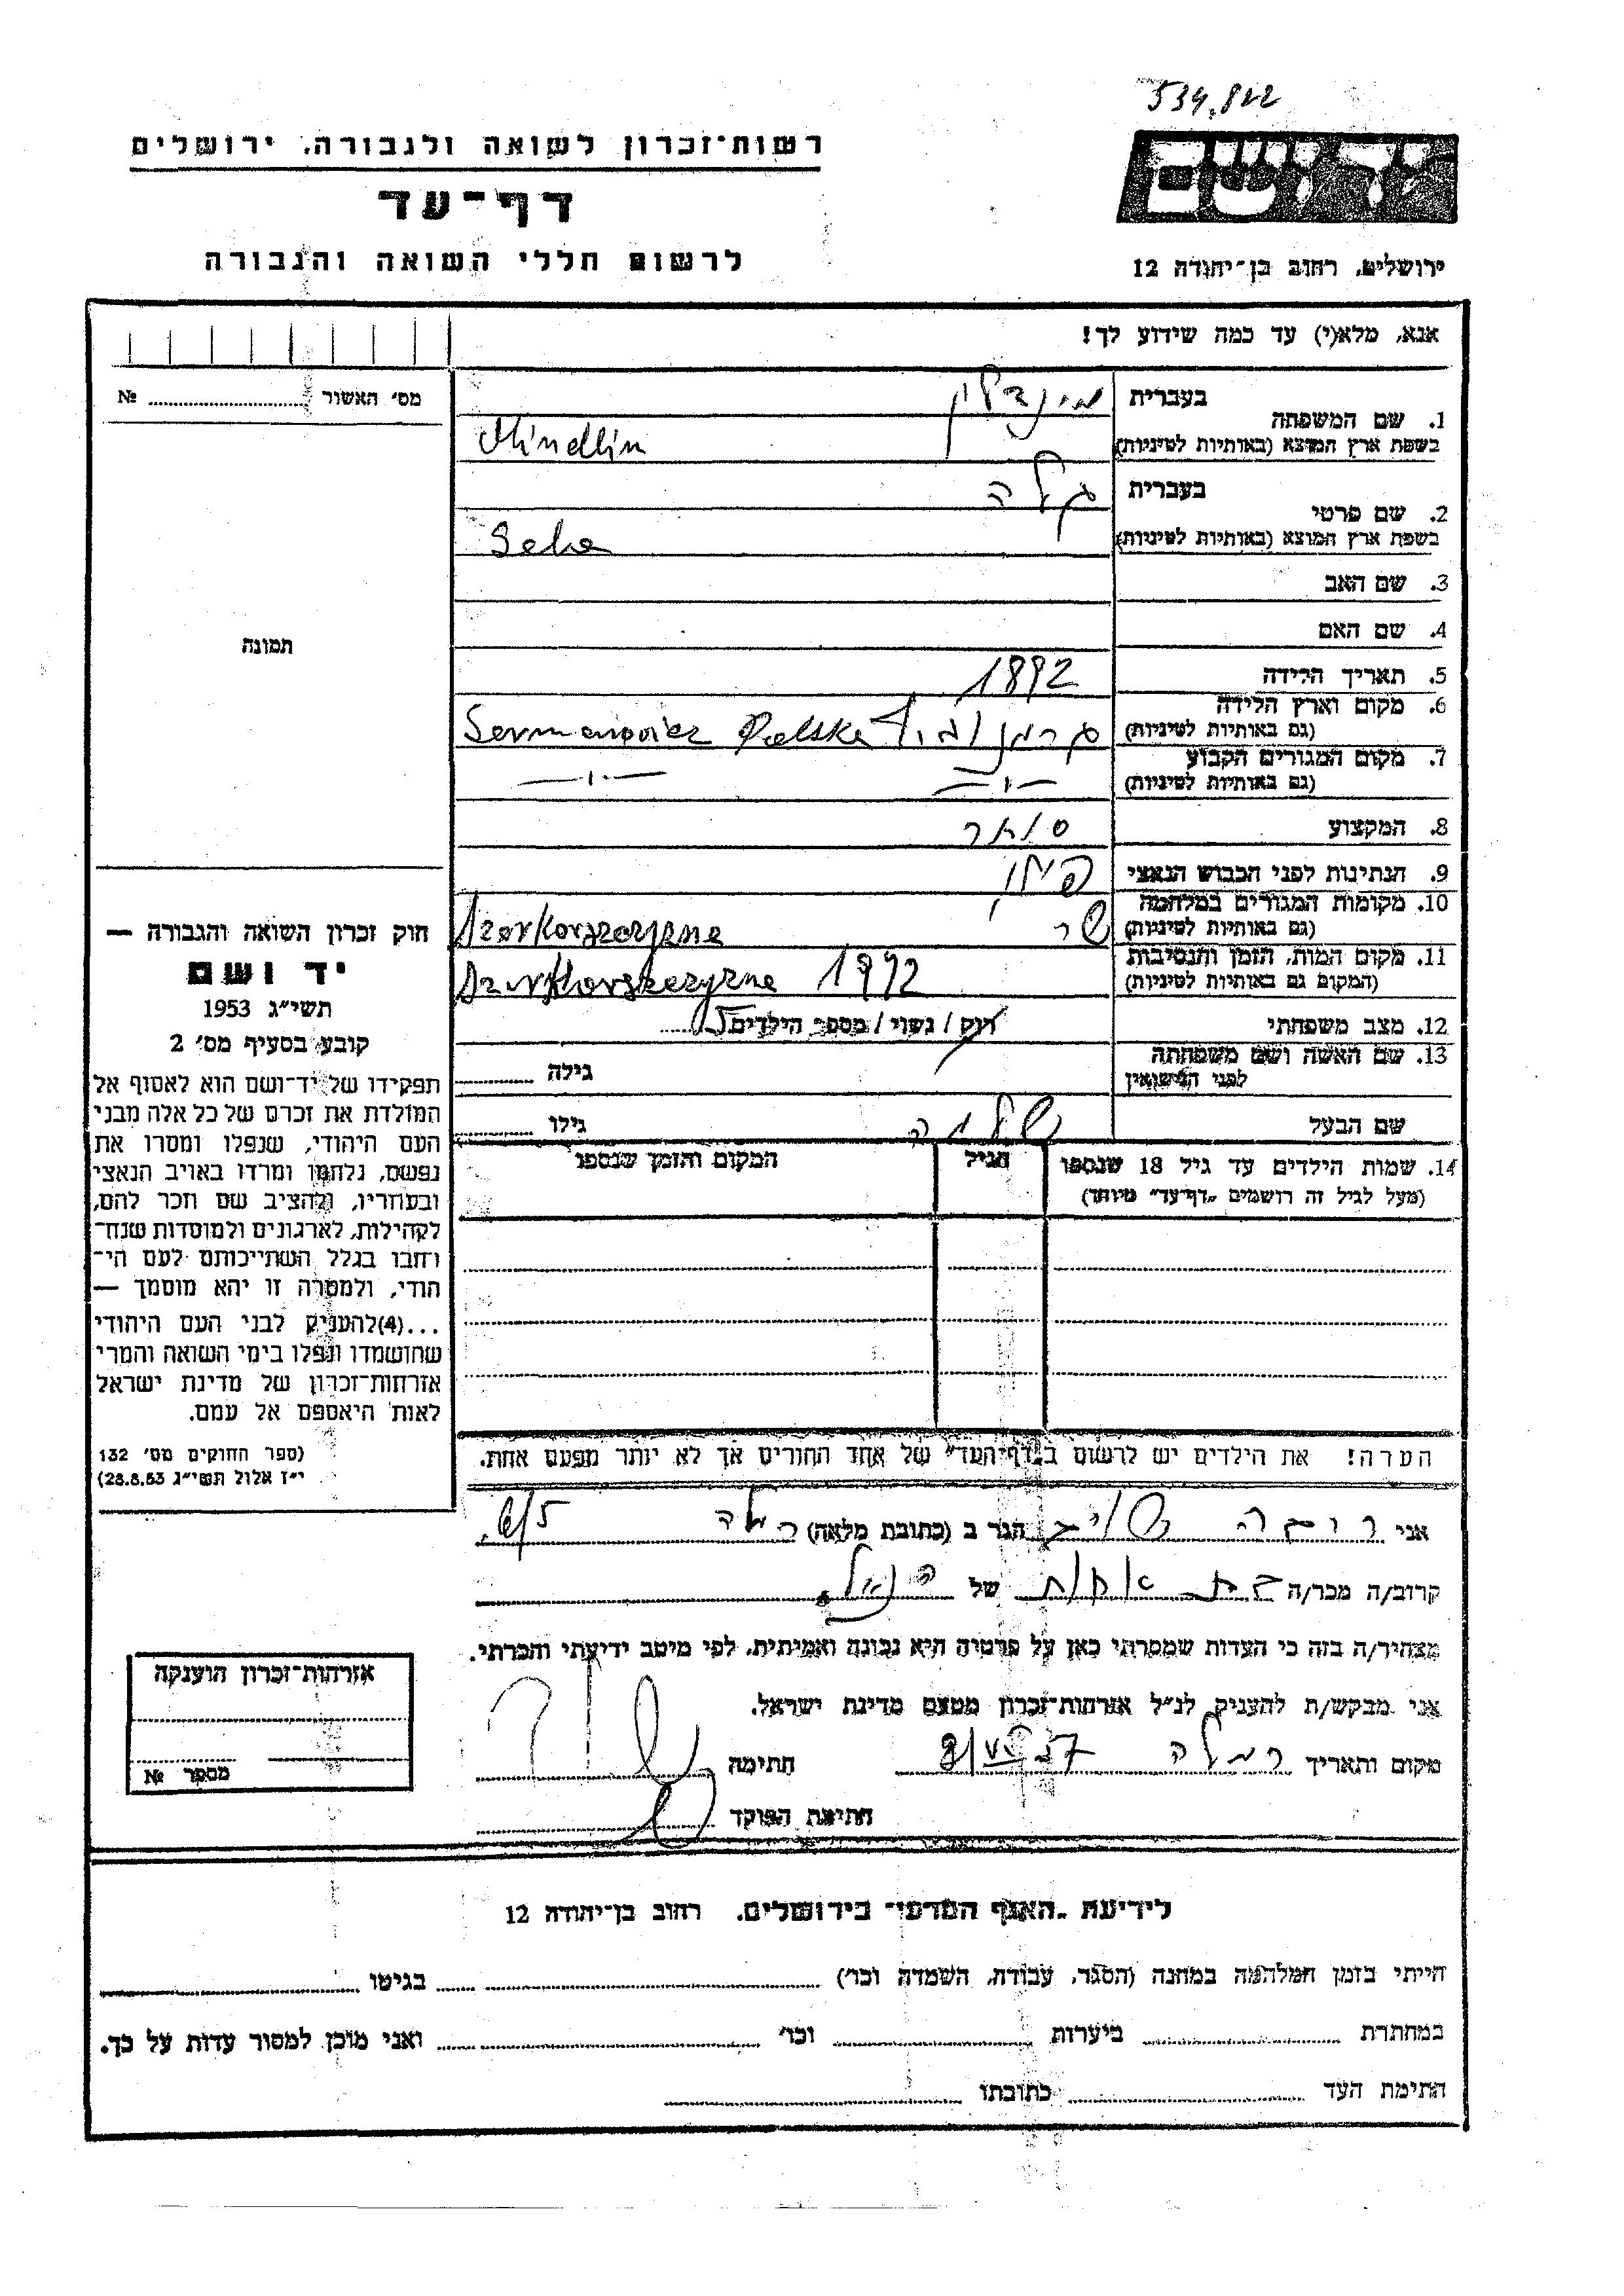 534,822
רשות־זכרון לשואה ולגבורה, ירושלים
יד ושם
דף־עד
לרשום חללי השואה והגבורה
ירושלים, רחוב בן־יהודה 12
אנא, מלא(י) עד כמה שידוע לך!
מס׳ האשור № 
תמונה
חוק זכרון השואה והגבורה —
יד ושם
תשי״ג 1953
קובע בסעיף מס׳ 2
תפקידו של יד־ושם הוא לאסוף אל
המולדת את זכרם של כל אלה מבני
העם היהודי, שנפלו ומסרו את
נפשם, נלחמו ומרדו באויב הנאצי
ובעוזריו, ולהציב שם וזכר להם,
לקהילות, לארגונים ולמוסדות שנח־
רחבו בגלל השתייכותם לעם הי־
הודי, ולמטרה זו יהא מוסמך —
...(4) להעניק לבני העם היהודי
שהושמדו ונפלו בימי השואה והמרי
אזרחות־זכרון של מדינת ישראל
לאות היאספם אל עמם.
(ספר החוקים מס׳ 132
י״ז אלול תשי״ג 28.8.53)
1. שם המשפחה בעברית מינדלין
בשפת ארץ המוצא (באותיות לטיניות) Mindlin
2. שם פרטי בעברית
בשפת ארץ המוצא (באותיות לטיניות)
3. שם האב
4. שם האם
5. תאריך הלידה 1892
6. מקום וארץ הלידה
(גם באותיות לטיניות) Polska
7. מקום המגורים הקבוע
(גם באותיות לטיניות) —״— —״—
8. המקצוע סוחר
9. הנתינות לפני הכבוש הנאצי פולני
10. מקומות המגורים במלחמה
(גם באותיות לטיניות)
11. מקום המות, הזמן והנסיבות
(המקום גם באותיות לטיניות) 1942
12. מצב משפחתי רוק / נשוי / מספר הילדים 5
13. שם האשה ושם משפחתה
לפני הנישואין גילה
שם הבעל שלמה גילו
14. שמות הילדים עד גיל 18 שנספו הגיל המקום והזמן שנספו
(מעל לגיל זה רושמים „דף־עד״ מיוחד)
הערה! את הילדים יש לרשום ב„דף־העד״ של אחד ההורים אך לא יותר מפעם אחת.
אני הגר ב (כתובת מלאה) רמלה
קרוב/ה מכר/ה בת אחות של הנ״ל
מצהיר/ה בזה כי העדות שמסרתי כאן על פרטיה היא נכונה ואמיתית, לפי מיטב ידיעתי והכרתי.
אני מבקש/ת להעניק לנ״ל אזרחות־זכרון מטעם מדינת ישראל.
מקום ותאריך רמלה 57 חתימה
חתימת הפוקד
אזרחות־זכרון הוענקה
מספר №
לידיעת „האגף המדעי״ בירושלים, רחוב בן־יהודה 12
הייתי בזמן המלחמה במחנה (הסגר, עבודה, השמדה וכו׳) בגיטו
במחתרת ביערות וכו׳ ואני מוכן למסור עדות על כך.
חתימת העד כתובתו